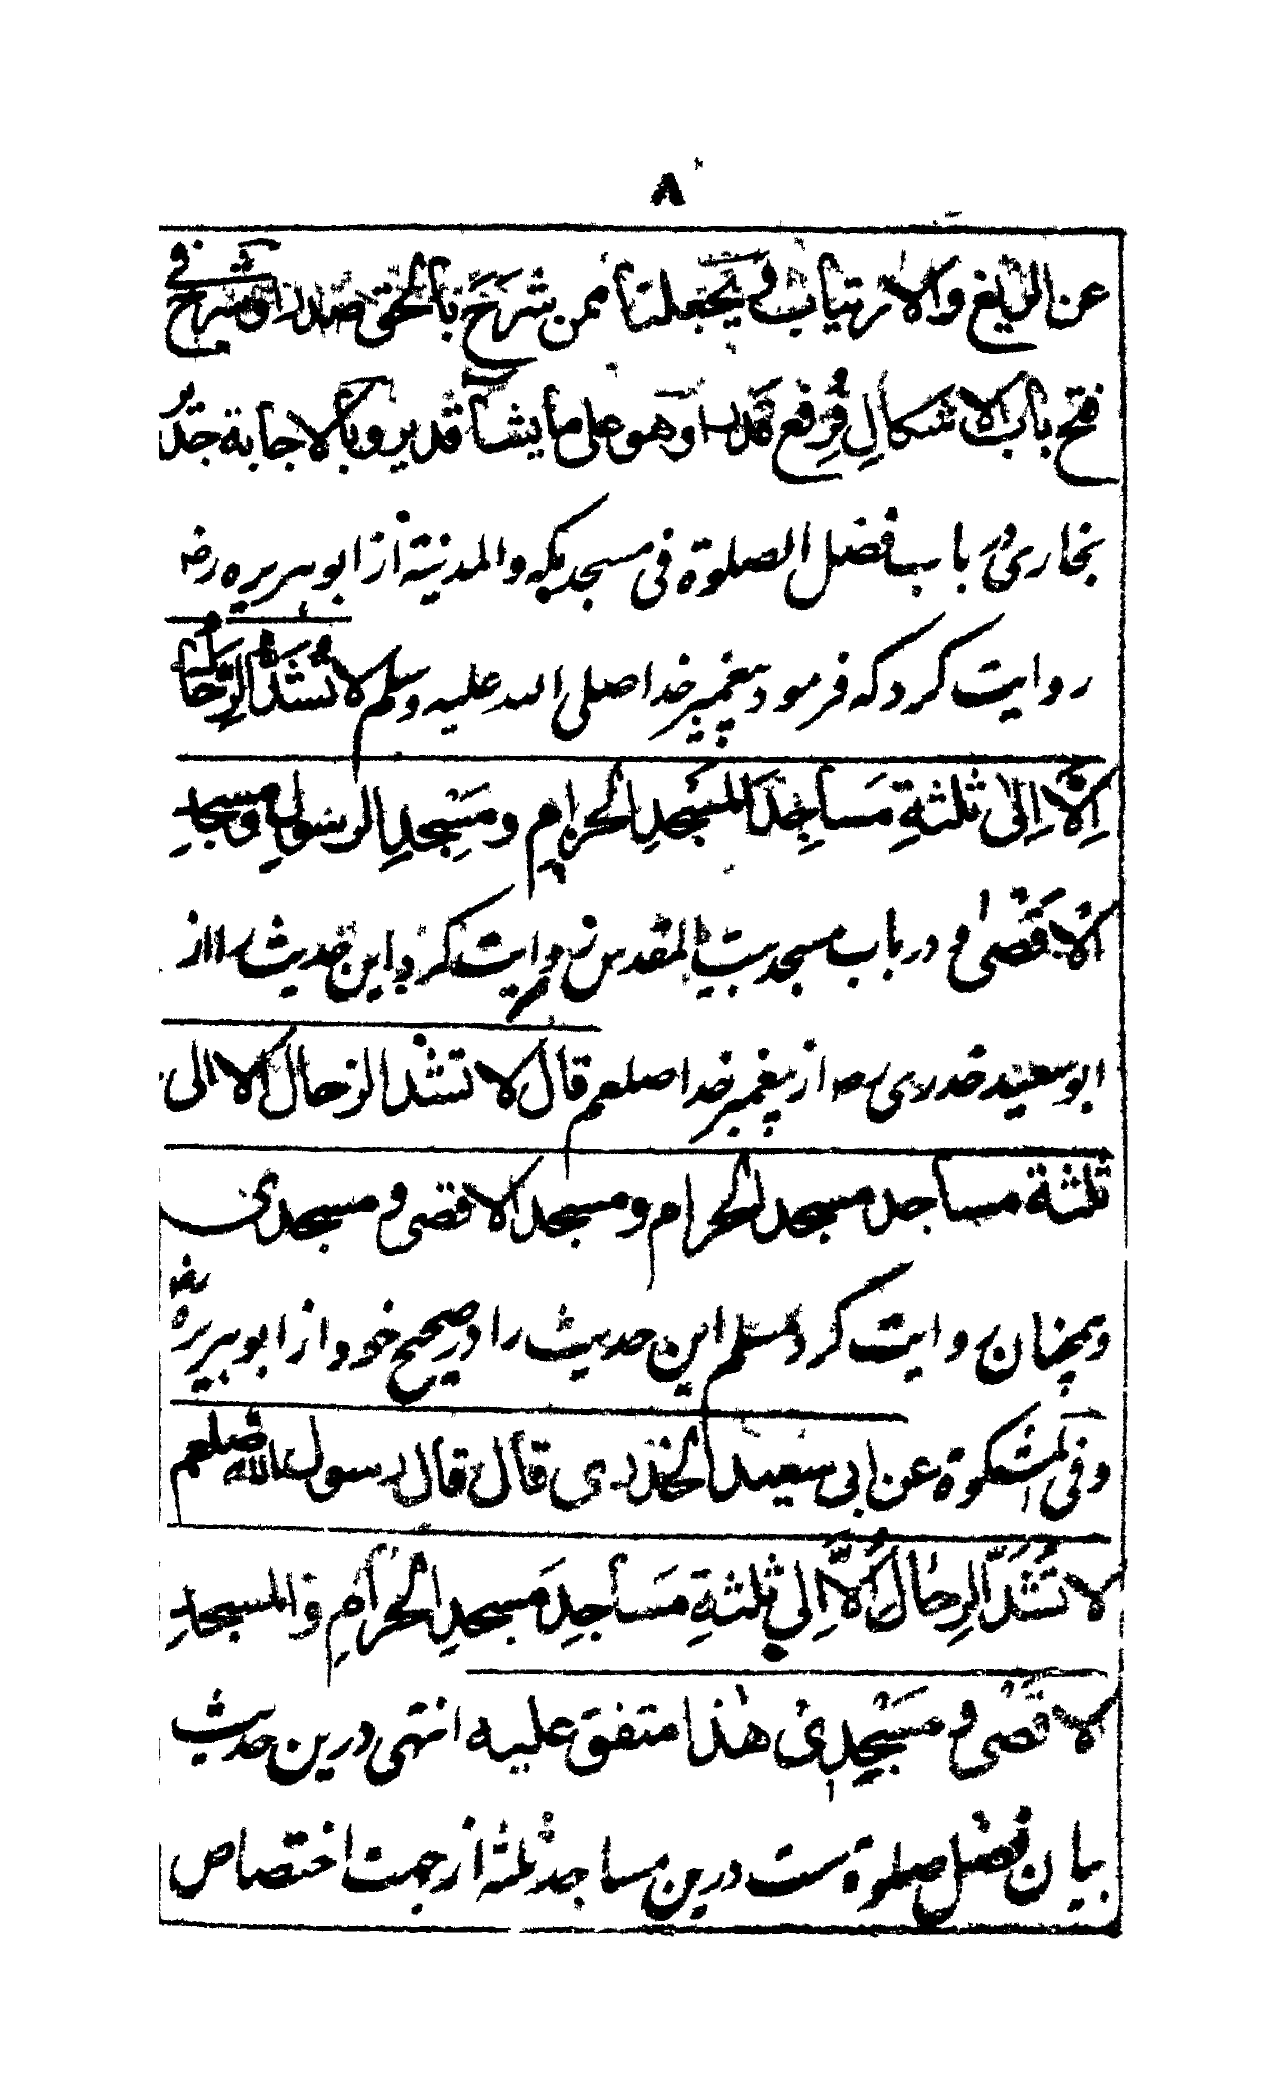 ۸
عن الزیغ والارتیاب ویجعلنا ممن شرح بالحق صدرا وشرح فی
فتح باب الاشکال فرفع قدرا وهو علی ما یشآ قدیر وبالاجابة جدیر
بخاری در باب فضل الصلوة فی مسجد مکه والمدنیة از ابو ہریره رض
روایت کرد که فرمود پیغمبر خدا صلی الله علیه وسلم لا تُشَدُّ الرِّحَالُ
اِلَّا اِلیٰ ثلثةِ مَسَاجِدَ المَسْجِدِ الحَرامِ ومَسْجِدِ الرسولِ ومسجدِ
الاَقصیٰ و در باب مسجد بیت المقدس نیز روایت کرد این حدیث را از
ابو سعید خدری رض از پیغمبر خدا صلعم قال لا تشد الرحال الا الی
ثلثة مساجد مسجد الحرام ومسجد الاقصی و مسجدی
وہمچنان روایت کرد مسلم این حدیث را در صحیح خود از ابو ہریره رض
وفی المشکوة عن ابی سعید الخدری قال قال رسول الله صلعم
لا تَشُدُّ الرِحَالُ اِلّا اِلی ثلثةِ مَسَاجِدِ مَسجدِ الحَرَامِ والمسجدِ
لاقصٰی و مَسْجِدِیْ هٰذا متفق علیه انتهی درین حدیث
بیان فضل صلوة ست درین مساجد ثلثه از جهت اختصاص